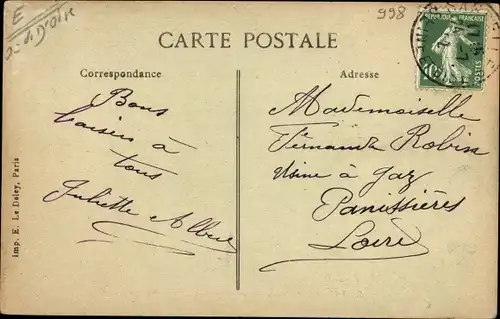 E
998
CARTE POSTALE
REPUBLIQUE FRANÇAISE
POSTES
Correspondance
Bons
baisers à
tous
Juliette
Adresse
Mademoiselle
Fernande Robin
Usine à gaz
Panissières
Loire
Imp. E. Le Deley, Paris